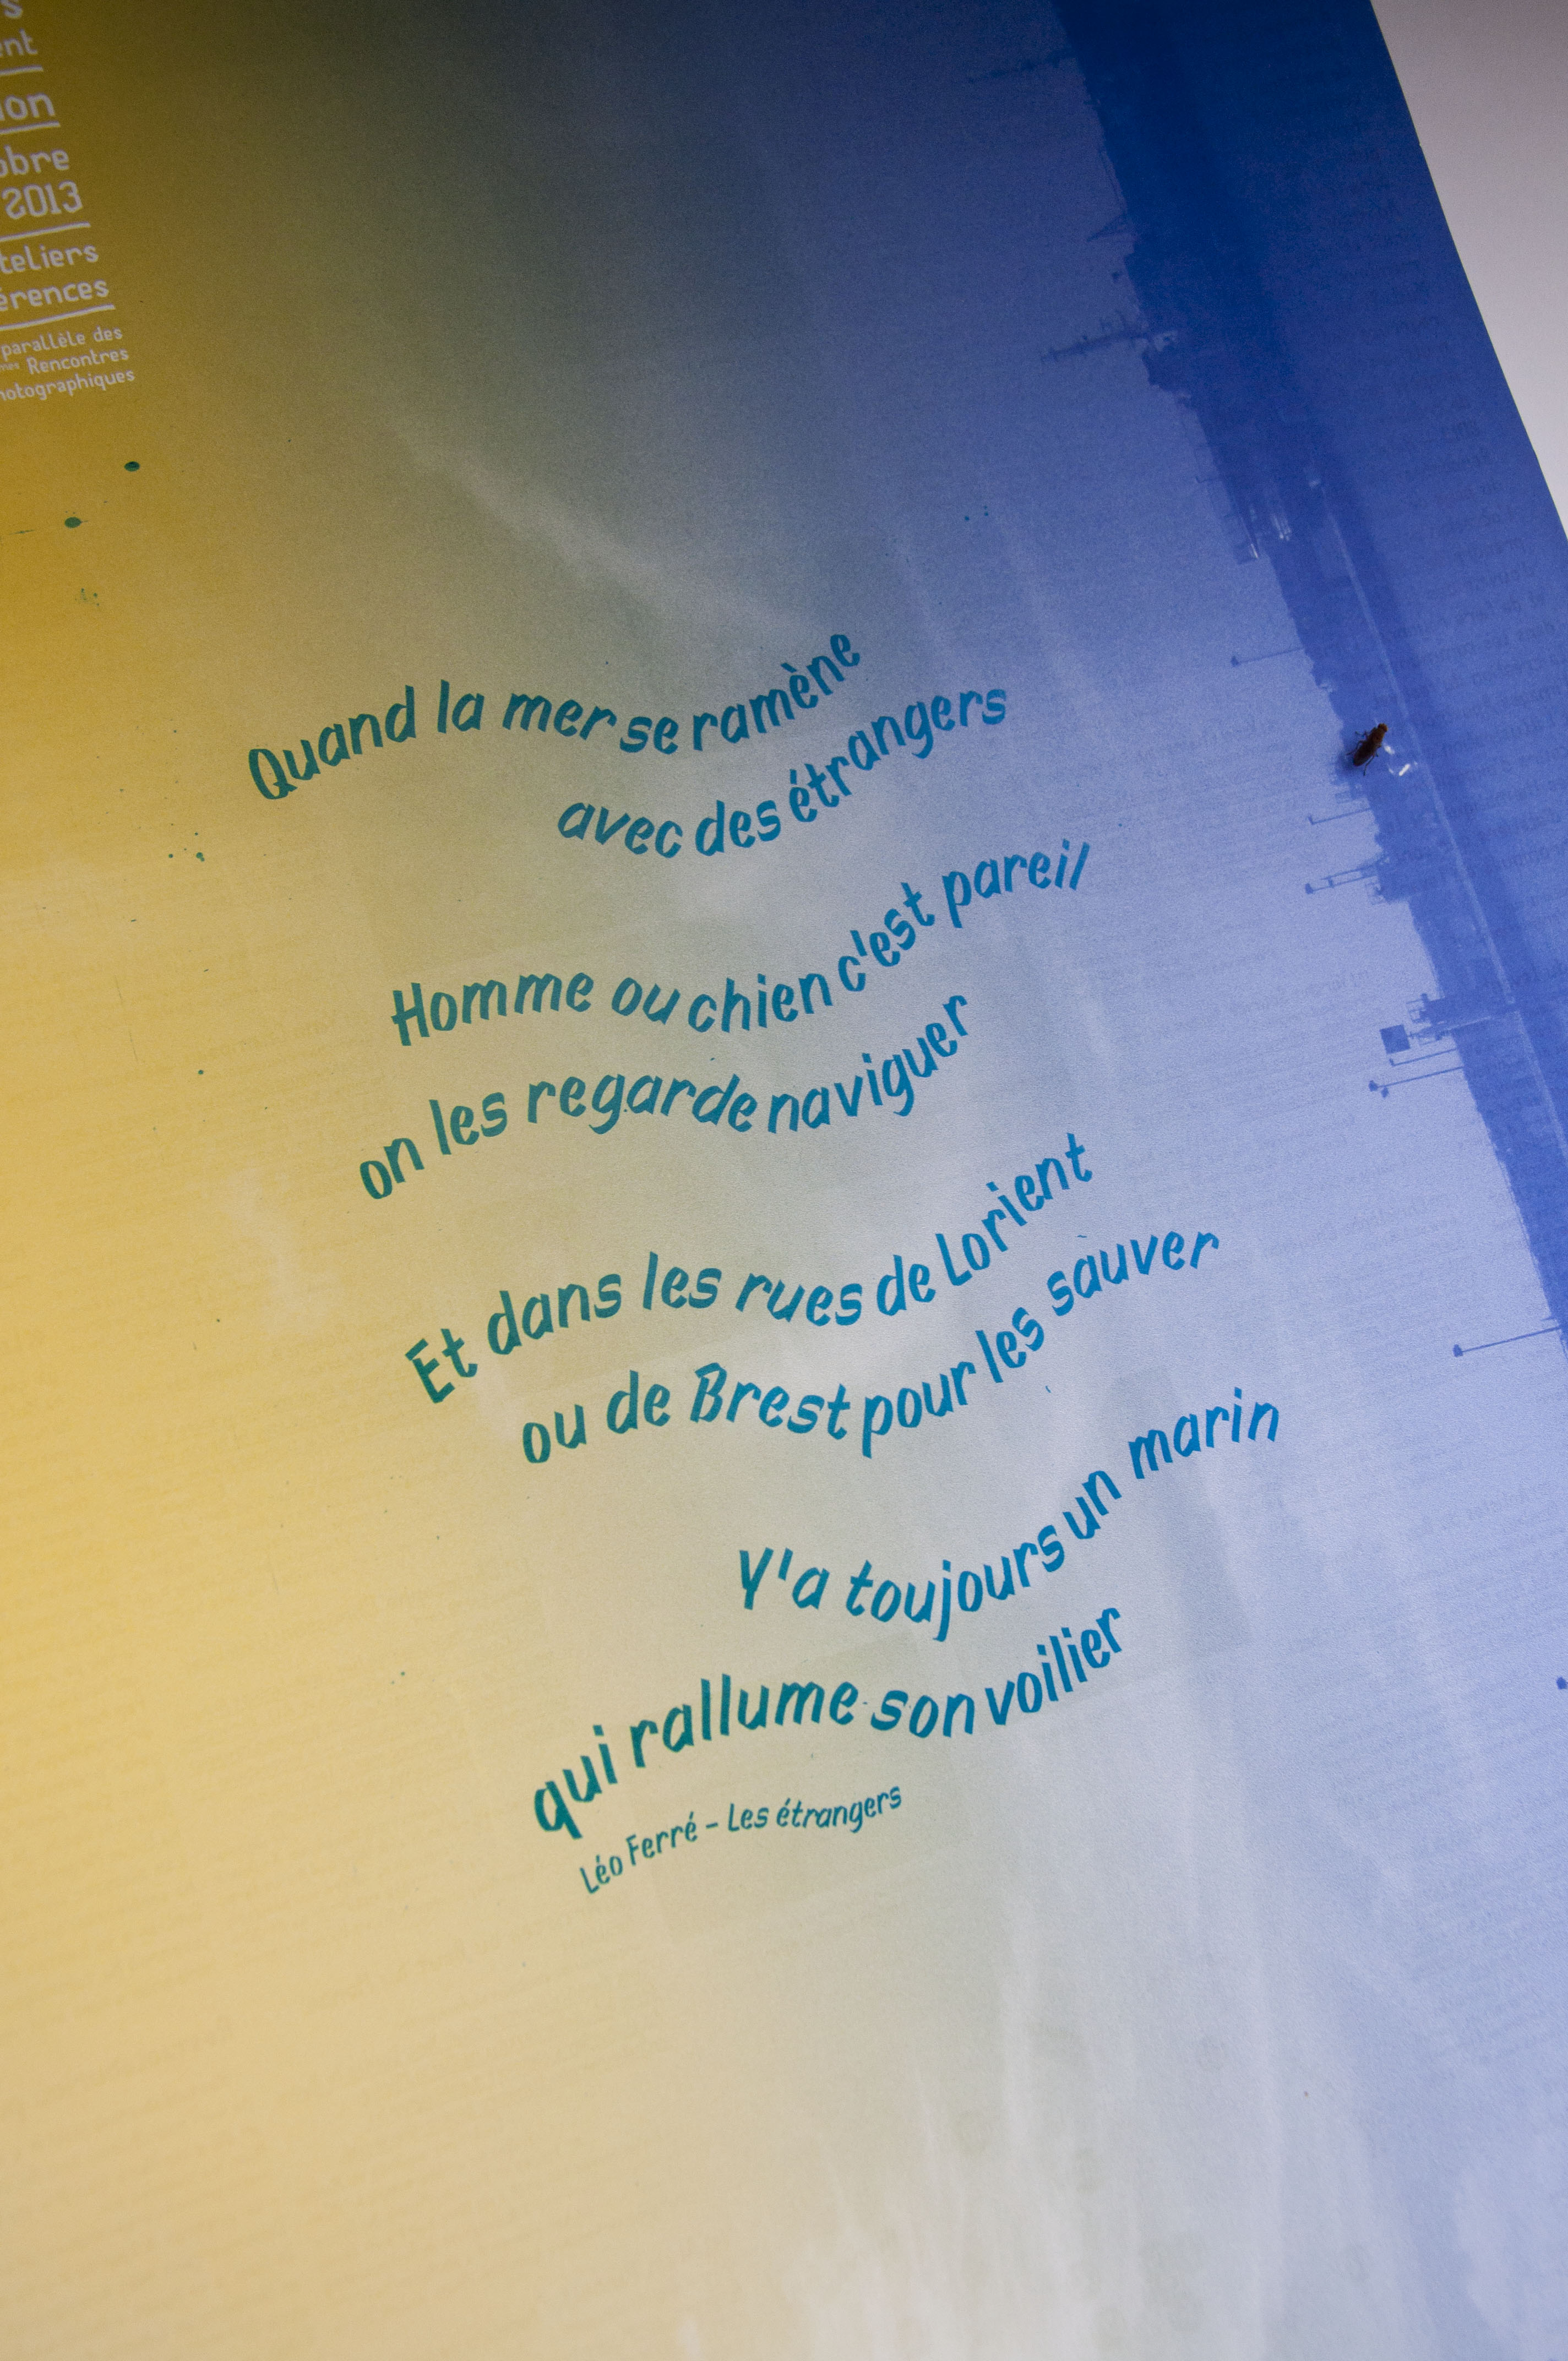 2013
parallèle des
Rencontres
Quand la mer se ramène
avec des étrangers
Homme ou chien c'est pareil
on les regarde naviguer
Et dans les rues de Lorient
ou de Brest pour les sauver
Y'a toujours un marin
qui rallume son voilier
Léo Ferré - Les étrangers